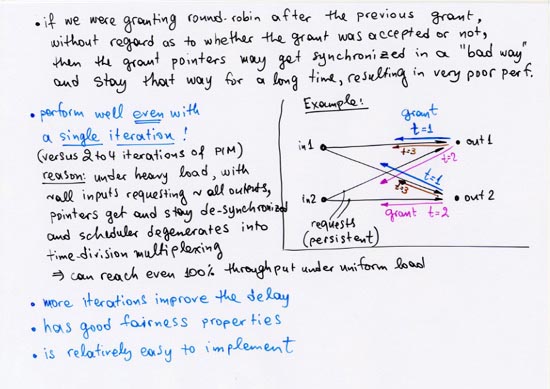 • if we were granting round-robin after the previous grant,
without regard as to whether the grant was accepted or not,
then the grant pointers may get synchronized in a "bad way"
and stay that way for a long time, resulting in very poor perf.
• perform well even with
a single iteration !
(versus 2 to 4 iterations of PIM)
reason: under heavy load, with
~all inputs requesting ~all outputs,
pointers get and stay de-synchronized
and scheduler degenerates into
time-division multiplexing
⇒ can reach even 100% throughput under uniform load
• more iterations improve the delay
• has good fairness properties
• is relatively easy to implement
Example:
grant
t=1
in1
out 1
t=3
t=2
t=1
t=3
in2
out 2
grant t=2
requests
(persistent)